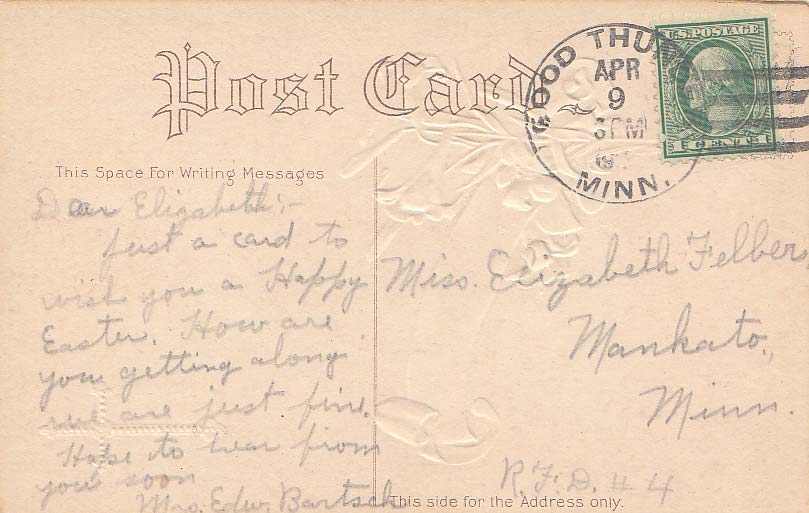 Post Card
GOOD THUN
APR
9
3 PM
MINN.
U.S. POSTAGE
1 CENT 1
This Space For Writing Messages
Dear Elizabeth:-
Just a card to
wish you a Happy
Easter. How are
you getting along
we are just fine.
Hope to hear from
you soon
Mrs. Edw. Bartsch
Miss. Elizabeth Felbers
Mankato,
Minn.
R.F.D. # 4
This side for the Address only.